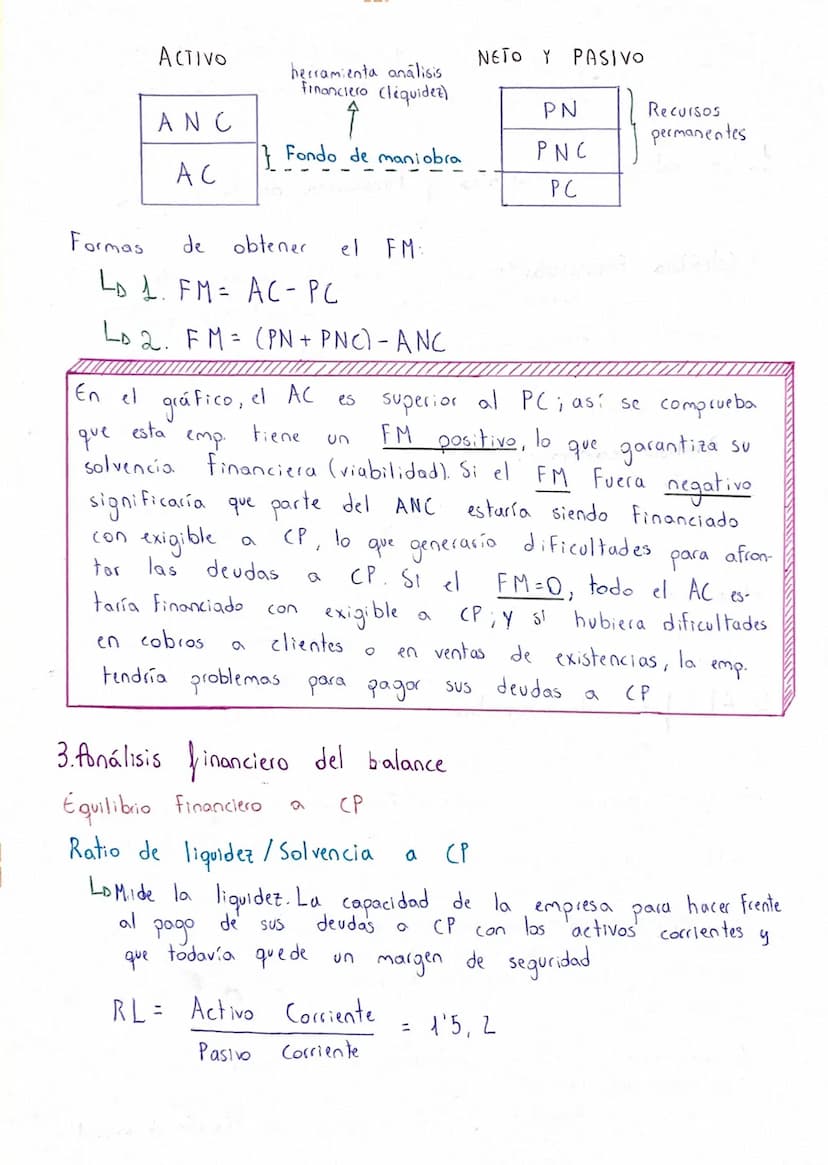 ACTIVO
NETO Y PASIVO
herramienta análisis
financiero (liquidez)
ANC
AC
Fondo de maniobra
PN
PNC
PC
Recursos
permanentes
Formas de obtener el FM:
1. FM = AC - PC
2. FM = (PN + PNC) - ANC
En el gráfico, el AC es superior al PC; así se comprueba
que esta emp. tiene un FM positivo, lo que garantiza su
solvencia financiera (viabilidad). Si el FM fuera negativo
significaría que parte del ANC estaría siendo financiado
con exigible a CP, lo que generaría dificultades para afron-
tar las deudas a CP. Si el FM=0, todo el AC es-
taría financiado con exigible a CP; y si hubiera dificultades
en cobros a clientes o en ventas de existencias, la emp.
tendría problemas para pagar sus deudas a CP
3. Análisis financiero del balance
Equilibrio financiero a CP
Ratio de liquidez / Solvencia a CP
Mide la liquidez. La capacidad de la empresa para hacer frente
al pago de sus deudas a CP con los activos corrientes y
que todavía quede un margen de seguridad
RL = Activo Corriente
Pasivo Corriente
= 1'5, 2